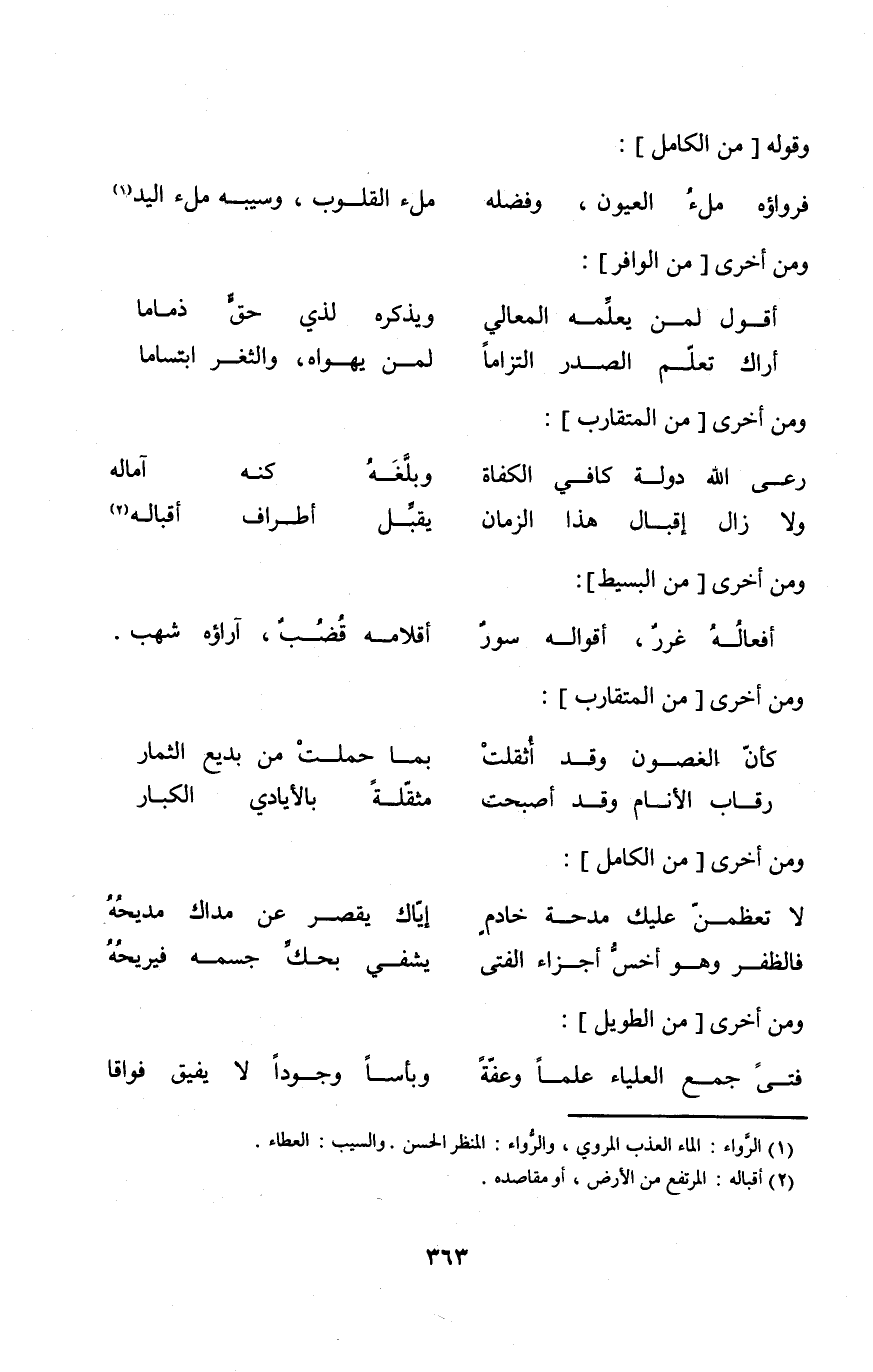 وقوله [ من الكامل ] :
فرواؤه ملءُ العيون ، وفضله ملء القلوب ، وسيبه ملء اليد(١)
ومن أخرى [ من الوافر ] :
أقول لمن يعلِّمه المعالي ويذكره لذي حقٍّ ذماما
أراك تعلّم الصدر التزاماً لمن يهواه، والثغر ابتساما
ومن أخرى [ من المتقارب ] :
رعى الله دولة كافي الكفاة وبلَّغَهُ كنه آماله
ولا زال إقبال هذا الزمان يقبِّل أطراف أقباله(٢)
ومن أخرى [ من البسيط ]:
أفعالُهُ غررٌ ، أقواله سورٌ أقلامه قُضُبٌ ، آراؤه شهب .
ومن أخرى [ من المتقارب ] :
كأنّ الغصون وقد أُثقلتْ بما حملتْ من بديع الثمار
رقاب الأنام وقد أصبحت مثقّلةً بالأيادي الكبار
ومن أخرى [ من الكامل ] :
لا تعظمنّ عليك مدحة خادمٍ إيّاك يقصر عن مداك مديحُهُ
فالظفر وهو أخسُّ أجزاء الفتى يشفي بحكٍّ جسمه فيريحُهُ
ومن أخرى [ من الطويل ] :
فتىً جمع العلياء علماً وعفّةً وبأساً وجوداً لا يفيق فواقا
(١) الرَّواء : الماء العذب المروي ، والرُّواء : المنظر الحسن . والسيب : العطاء .
(٢) أقباله : المرتفع من الأرض ، أو مقاصده .
٣٦٣